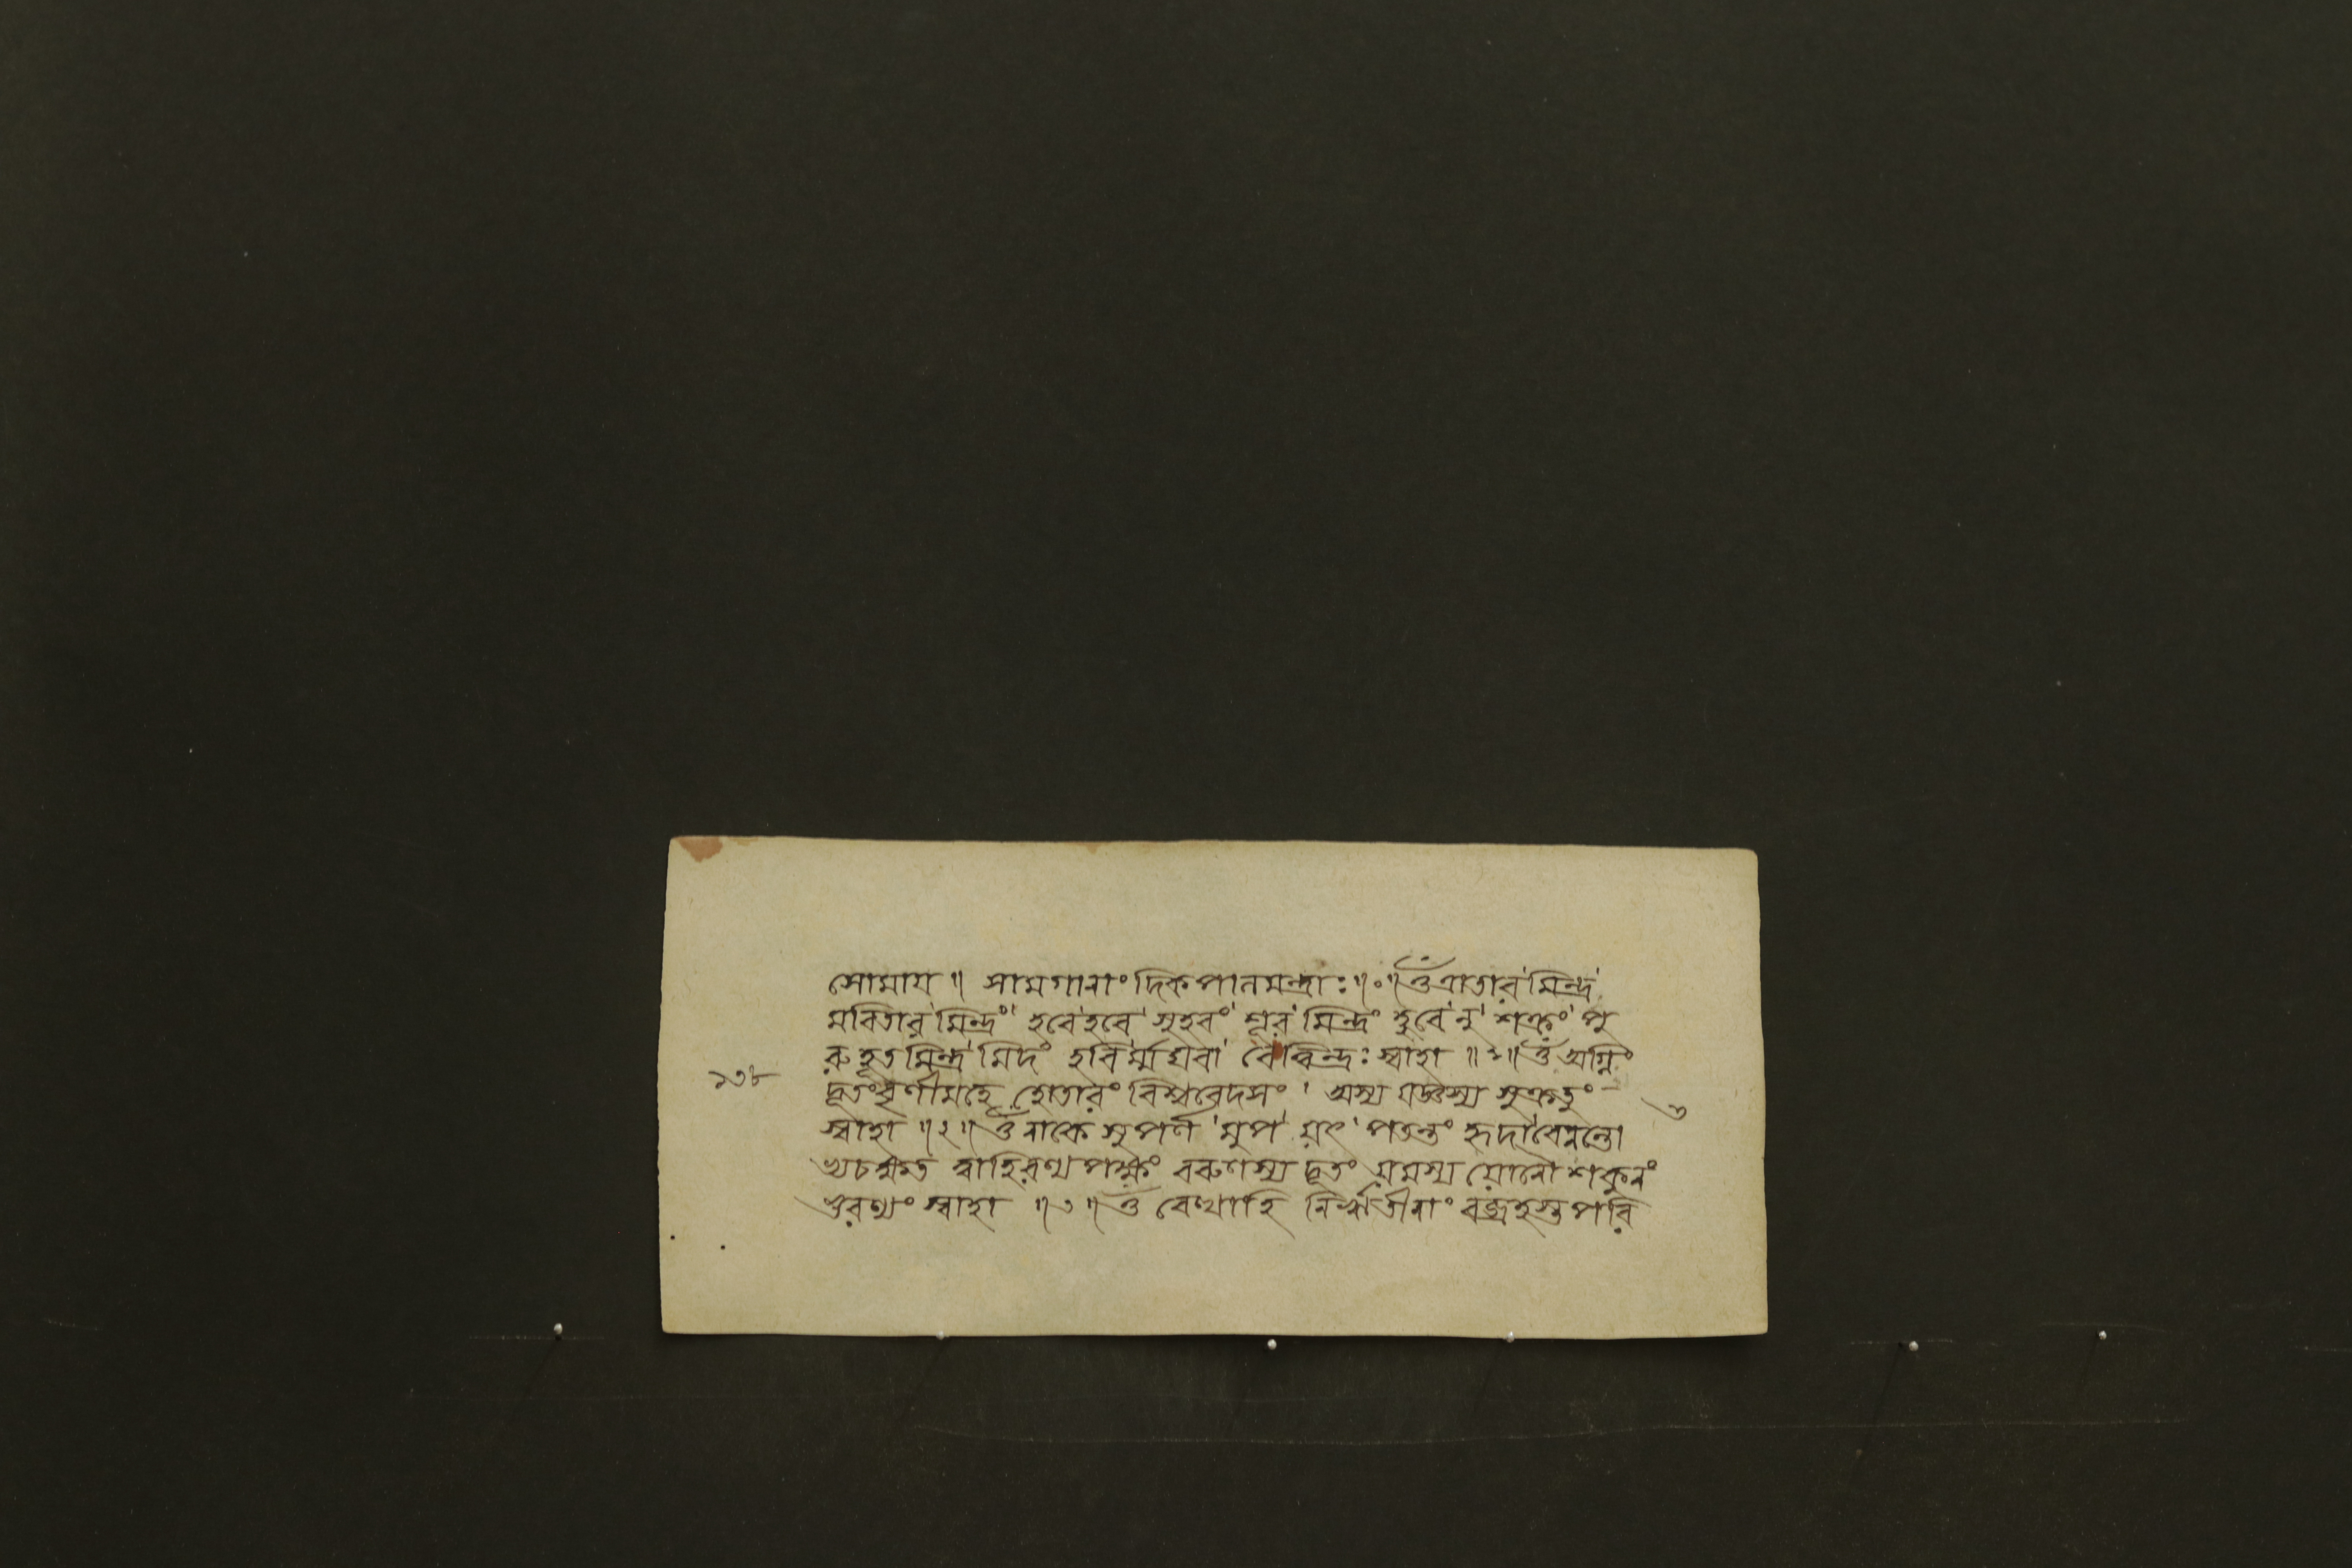 সোমায ॥ সামগানাং দিকপালমন্ত্রাঃ ॥০॥ ওঁ ত্রাতার'মিন্দ্র'
মবিতার'মিন্দ্রং' হবে'হবে' সুহবং' শূর'মিন্দ্রং হুবে'নু' শক্রং' পু
রুহূতমিন্দ্র'মিদং হবি'র্ম্মঘবা' বেত্বিন্দ্রঃ স্বাহা ॥১॥ ওঁ অগ্নিং
১৩৮
দূতংবৃণীমহে হোতারং বিশ্ববেদসং ' অস্য যজ্ঞস্য সুক্রতুং
৩
স্বাহা ॥২॥ ওঁ নাকে সুপর্ণ'মুপ'য়ৎ' পতন্তং হৃদা'বেনন্তো
ভ্যচক্ষত ত্বাহিরণ্যপক্ষং বরুণস্য দূতং য়মস্য য়োনৌ শকুনং
ভুরণ্যুং স্বাহা ॥৩॥ ওঁ বেত্থাহি নির্ঋতীনাং বজ্রহস্ত পরি